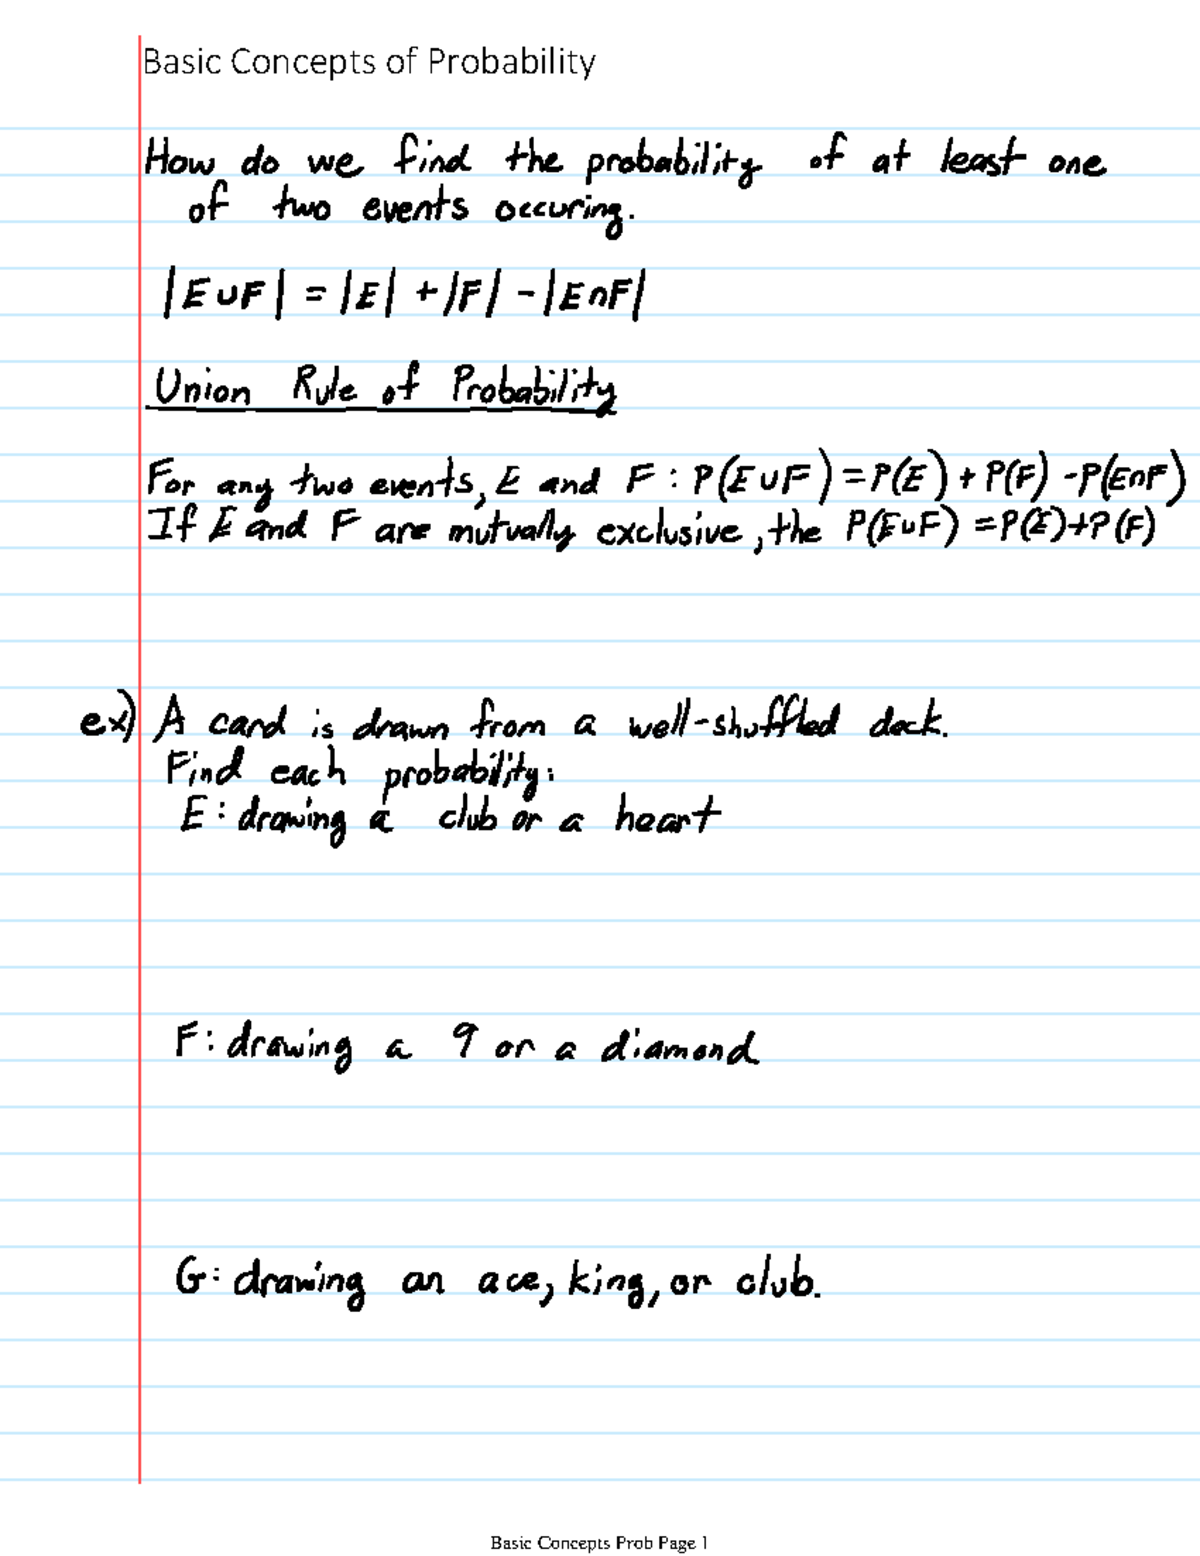 Basic Concepts of Probability
How do we find the probability of at least one
of two events occuring.
|E∪F| = |E| + |F| - |E∩F|
Union Rule of Probability
For any two events, E and F : P(E∪F) = P(E) + P(F) - P(E∩F)
If E and F are mutually exclusive, the P(E∪F) = P(E)+P(F)
ex) A card is drawn from a well-shuffled deck.
Find each probability:
E: drawing a club or a heart
F: drawing a 9 or a diamond
G: drawing an ace, king, or club.
Basic Concepts Prob Page 1